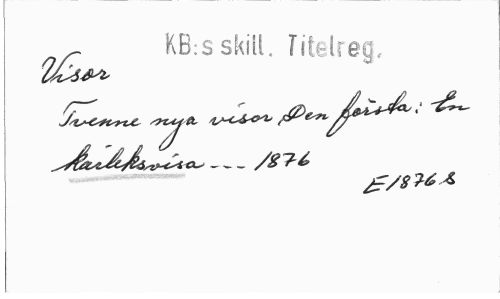 KB:s skill. Titelreg.
Visor
Tvenne nya visor Den första: En
kärleksvisa --- 1876
E1876 S